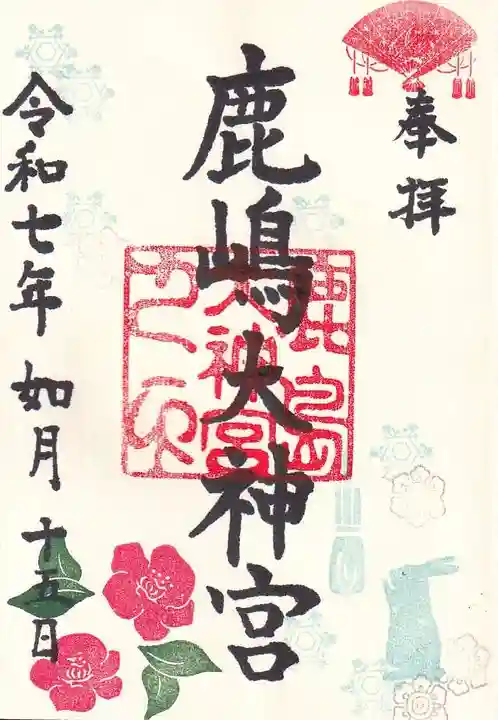 奉拝
鹿嶋大神宮
鹿島
大神宮
令和七年如月十五日